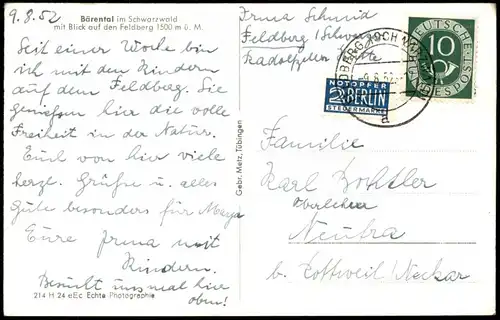 9.8.52
Bärental im Schwarzwald
mit Blick auf den Feldberg 1500 m ü. M.
Seit einer Woche bin
ich mit den Kindern
auf dem Feldberg. Sie
genießen hier die volle
Freiheit in der Natur.
Euch von hier viele
herzl. Grüße u. alles
Gute besonders für
Eure Irma mit
Kindern.
Besucht uns mal hier
oben!
214 H 24 eEc Echte Photographie
Gebr. Metz, Tübingen
Irma Schmid
Feldberg /Schw.
DEUTSCHE
10
BUNDESPOST
NOTOPFER
2 BERLIN
STEUERMARKE
a
Familie
Karl
Oberlehrer
Neufra
b. Rottweil / Neckar